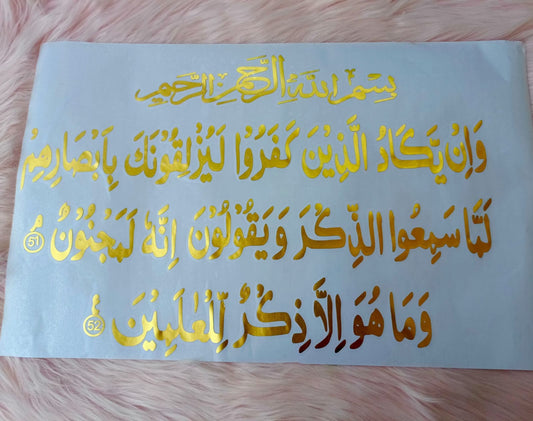 بِسْمِ اللهِ الرَّحْمٰنِ الرَّحِيْمِ
وَاِنْ يَّكَادُ الَّذِيْنَ كَفَرُوْا لَيُزْلِقُوْنَكَ بِاَبْصَارِهِمْ
لَمَّا سَمِعُوا الذِّكْرَ وَيَقُوْلُوْنَ اِنَّهٗ لَمَجْنُوْنٌ ۘ 51
وَمَا هُوَ اِلَّا ذِكْرٌ لِّلْعٰلَمِيْنَ ۧ 52